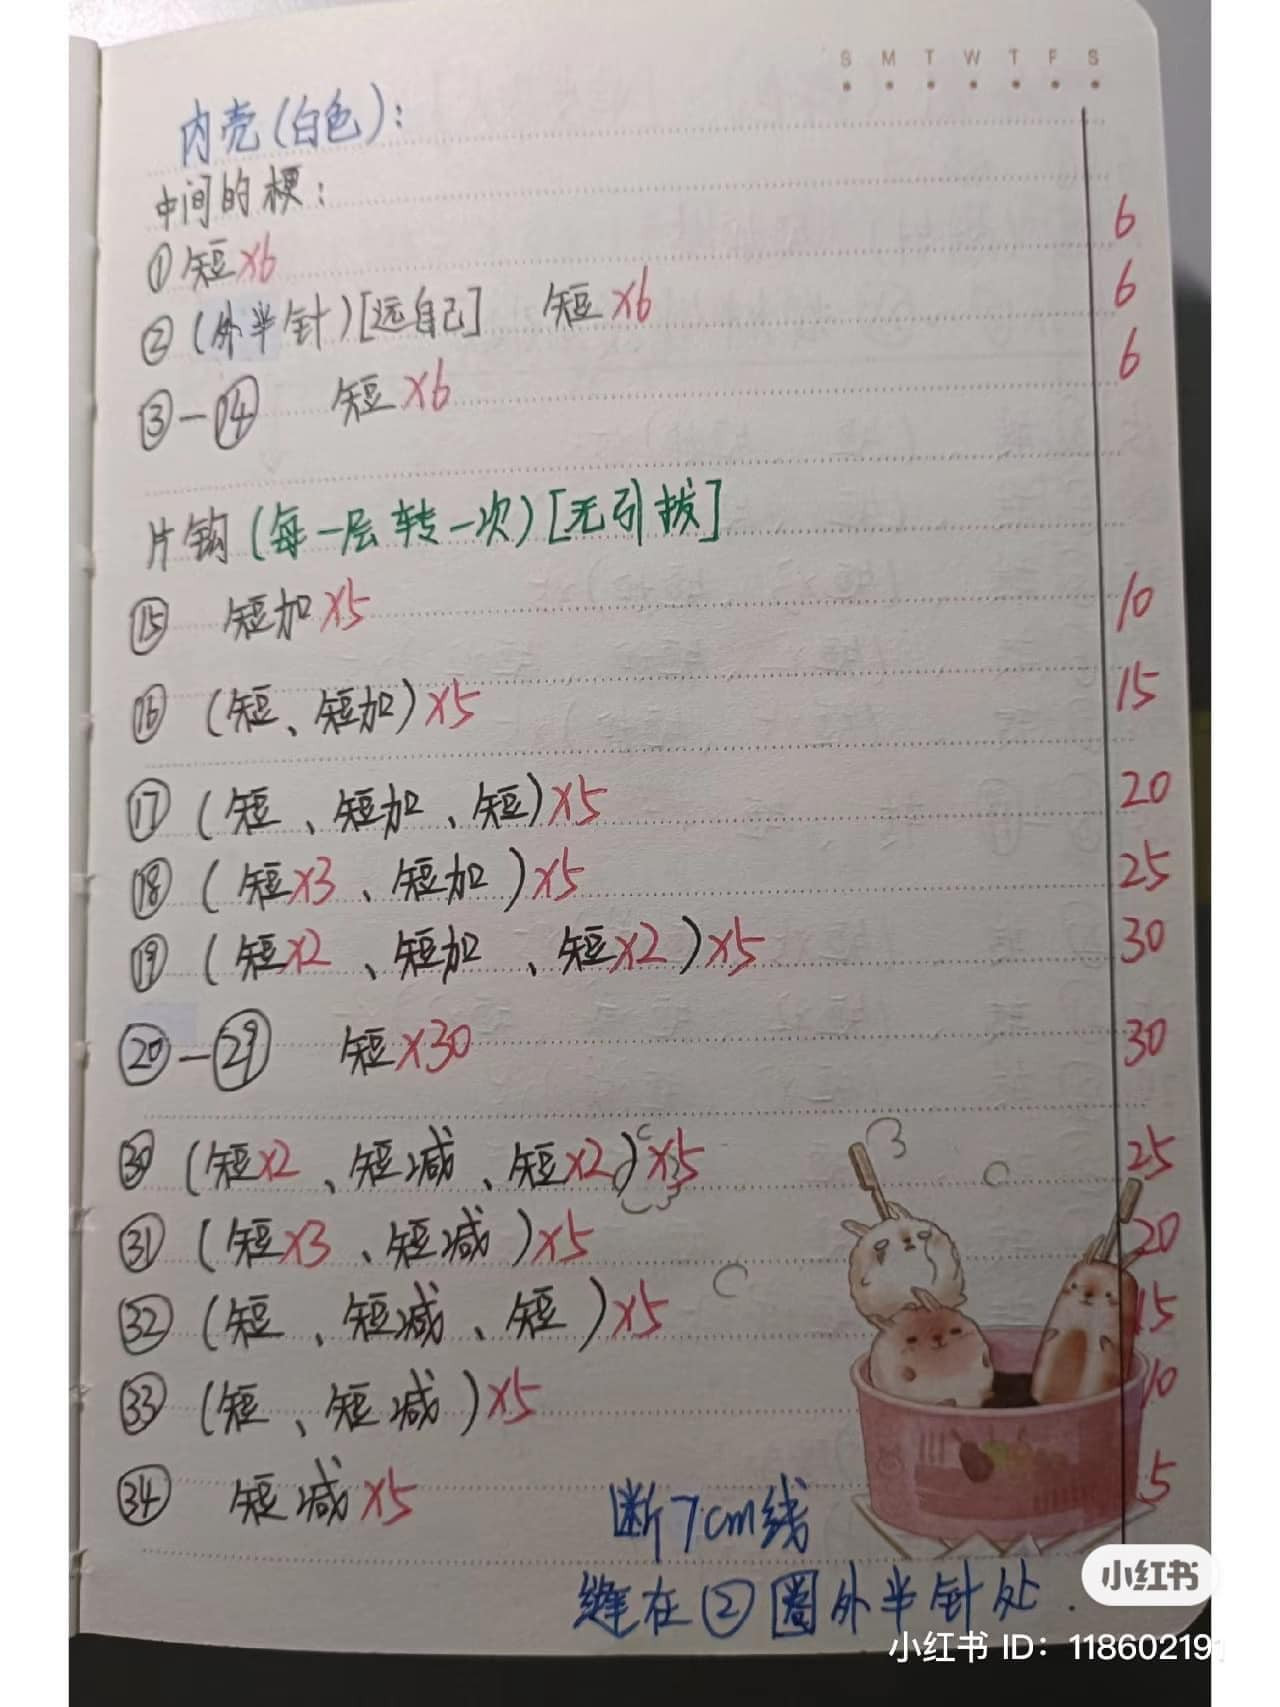 S M T W T F S
内壳(白色):
中间的梗:
①短×6 6
②(外半针)[远自己] 短×6 6
③-⑭ 短×6 6
片钩(每一层转一次)[无引拔]
⑮ 短加×5 10
⑯ (短、短加)×5 15
⑰ (短、短加、短)×5 20
⑱ (短×3、短加)×5 25
⑲ (短×2、短加、短×2)×5 30
⑳-㉙ 短×30 30
㉚ (短×2、短减、短×2)×5 25
㉛ (短×3、短减)×5 20
㉜ (短、短减、短)×5 15
㉝ (短、短减)×5 10
㉞ 短减×5 5
断7cm线
缝在②圈外半针处.
小红书
小红书 ID: 118602191